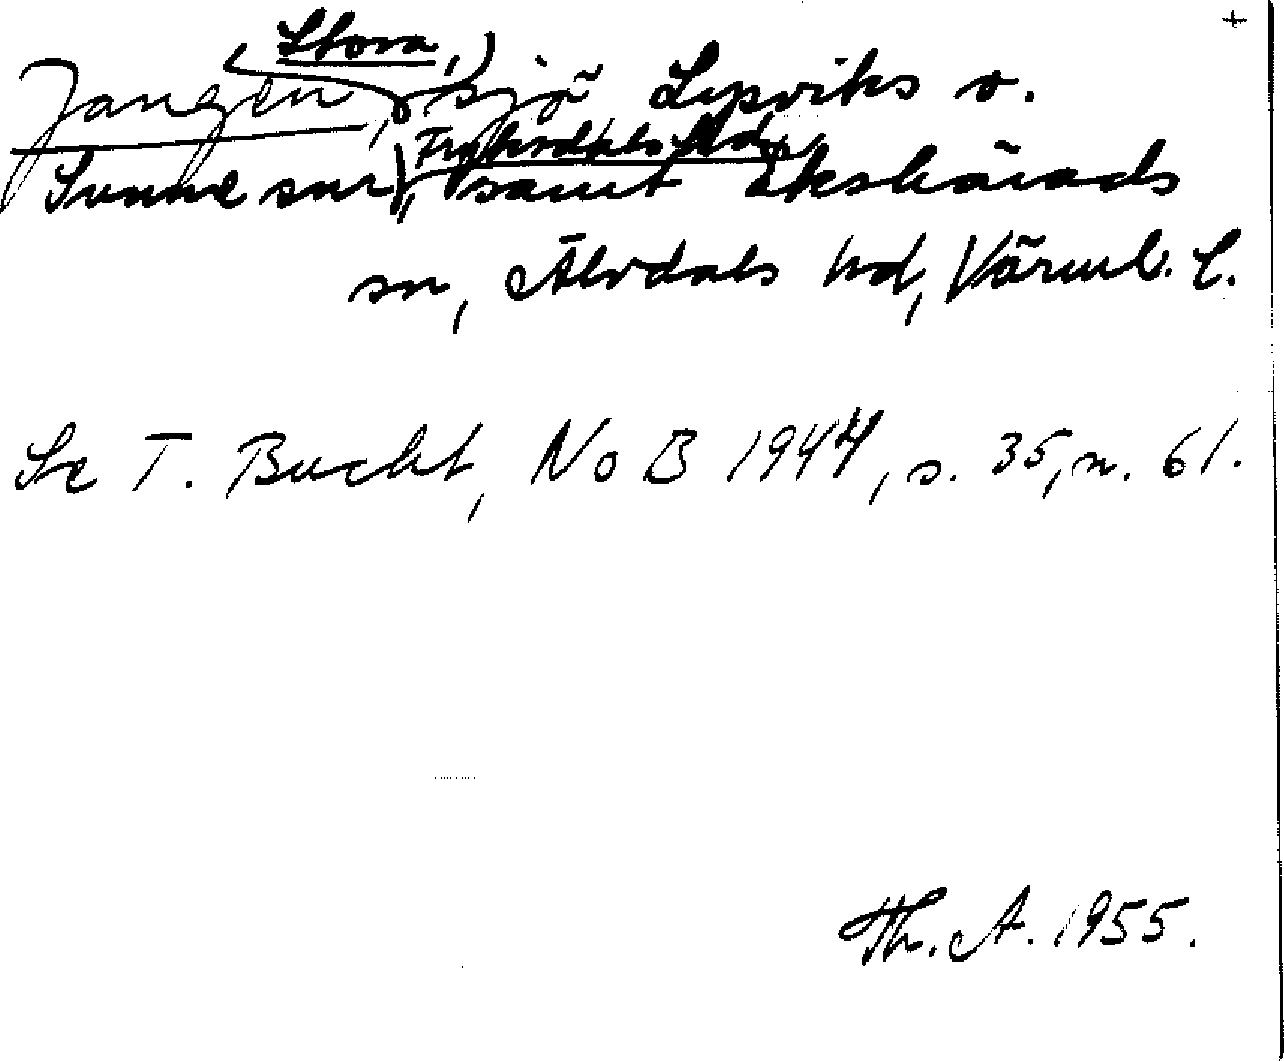 +
Stora,
Jangen, sjö Lysviks o.
Fryksdals hd,
Sunne snr, samt Ekshärads
sn, Älvdals hd, Värml. l.
Se T. Bucht, NoB 1944, s. 35, n. 61.
Th. A. 1955.